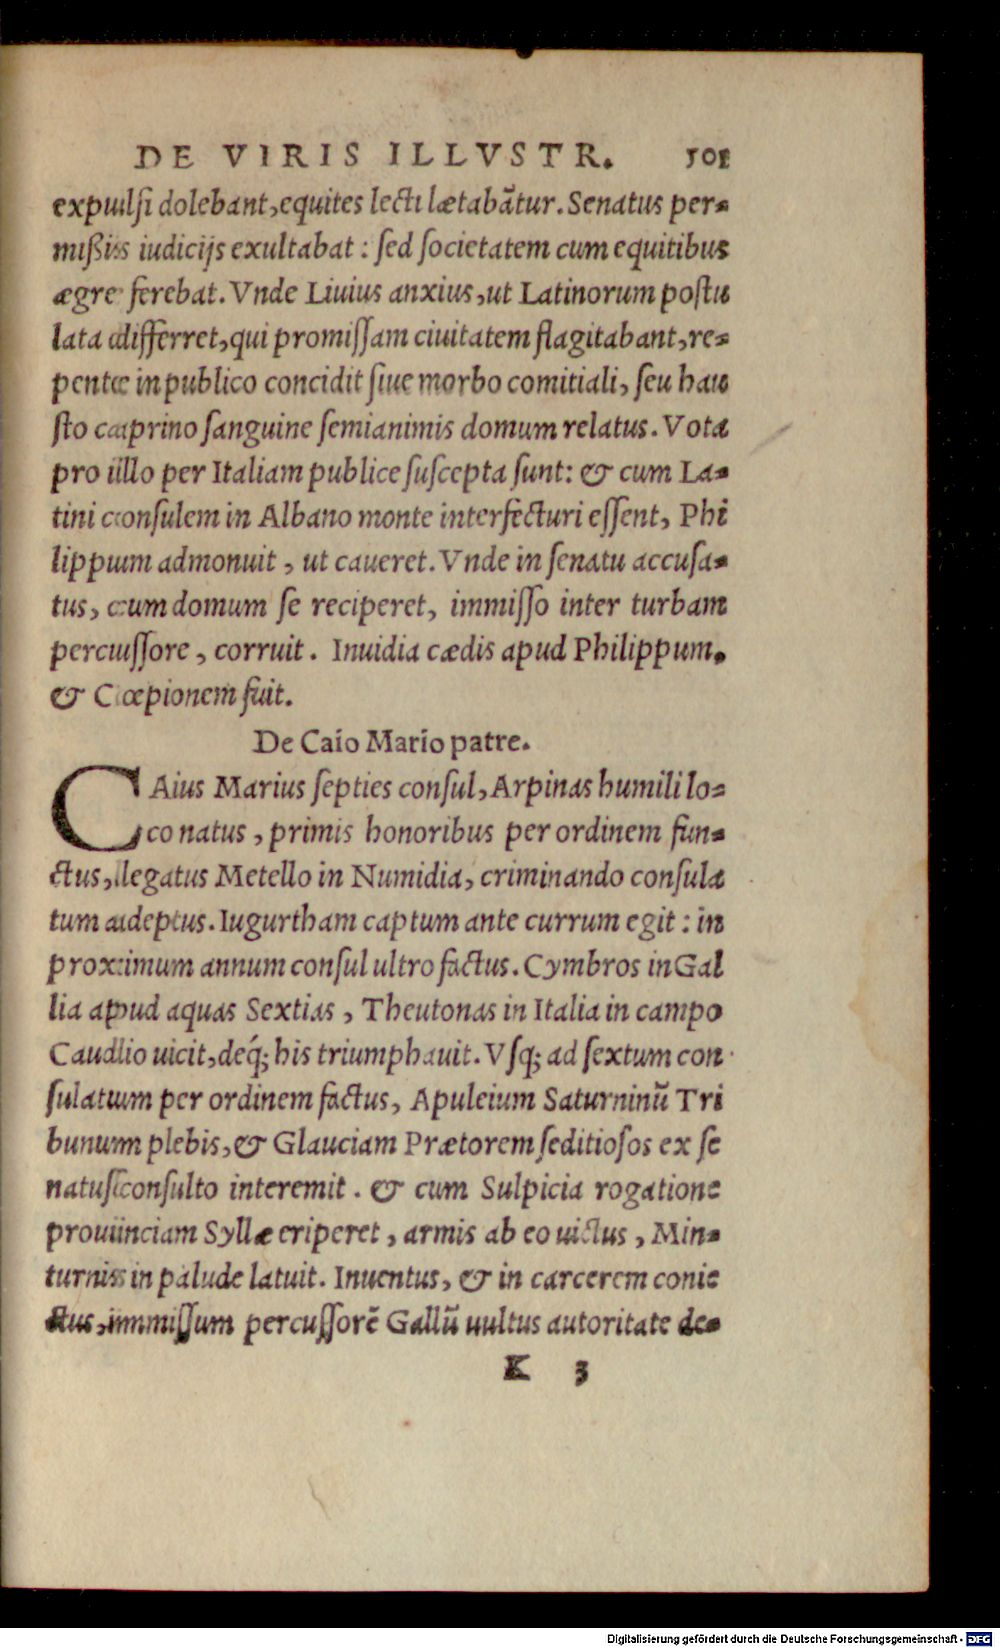 DE VIRIS ILLVSTR. 101
expulsi dolebant, equites lecti lætabãtur. Senatus per-
mißis iudicijs exultabat: sed societatem cum equitibus
ægre ferebat. Vnde Liuius anxius, ut Latinorum postu
lata differret, qui promissam ciuitatem flagitabant, re-
pente in publico concidit siue morbo comitiali, seu hau
sto caprino sanguine semianimis domum relatus. Vota
pro illo per Italiam publice suscepta sunt: & cum La-
tini consulem in Albano monte interfecturi essent, Phi
lippum admonuit, ut caueret. Vnde in senatu accusa-
tus, cum domum se reciperet, immisso inter turbam
percussore, corruit. Inuidia cædis apud Philippum.
& Cæpionem fuit.
De Caio Mario patre.
CAius Marius septies consul, Arpinas humili lo-
co natus, primis honoribus per ordinem fun-
ctus, legatus Metello in Numidia, criminando consula
tum adeptus. Iugurtham captum ante currum egit: in
proximum annum consul ultro factus. Cymbros in Gal
lia apud aquas Sextias, Theutonas in Italia in campo
Caudio uicit, deq́; his triumphauit. Vsq; ad sextum con
sulatum per ordinem factus, Apuleium Saturninũ Tri
bunum plebis, & Glauciam Prætorem seditiosos ex se
natusconsulto interemit. & cum Sulpicia rogatione
prouinciam Syllæ eriperet, armis ab eo uictus, Min-
turnis in palude latuit. Inuentus, & in carcerem conie
ctus, immissum percussorẽ Gallũ uultus autoritate de-
K 3
Digitalisierung gefördert durch die Deutsche Forschungsgemeinschaft - DFG